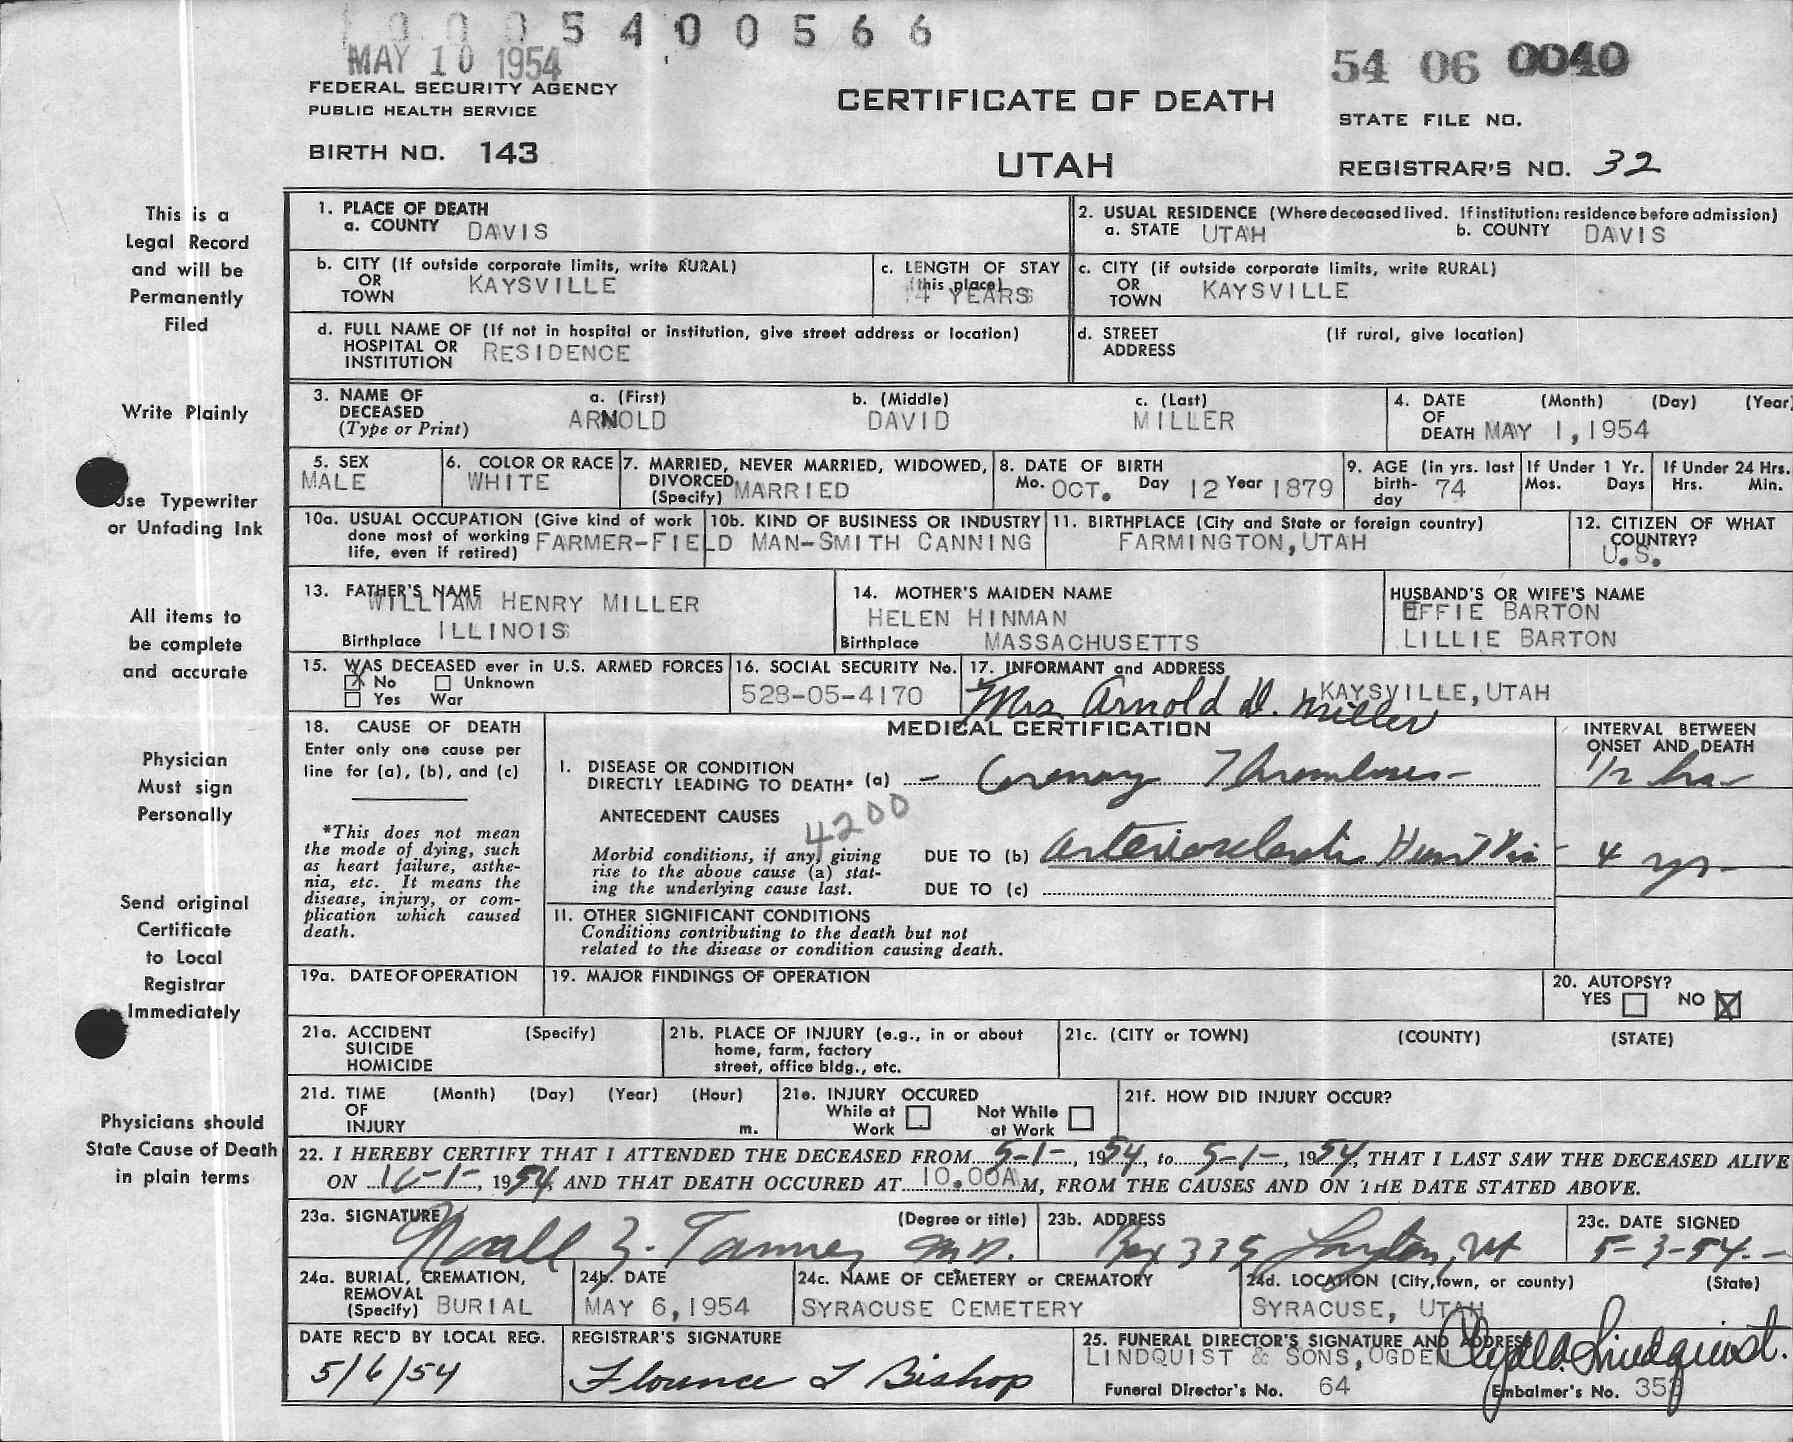 5 4 0 0 5 6 6
MAY 10 1954
54 06 0040
FEDERAL SECURITY AGENCY
PUBLIC HEALTH SERVICE
CERTIFICATE OF DEATH
STATE FILE NO.
BIRTH NO. 143
UTAH
REGISTRAR'S NO. 32
This is a
Legal Record
and will be
Permanently
Filed
Write Plainly
Use Typewriter
or Unfading Ink
All items to
be complete
and accurate
Physician
Must sign
Personally
Send original
Certificate
to Local
Registrar
Immediately
Physicians should
State Cause of Death
in plain terms
1. PLACE OF DEATH
a. COUNTY DAVIS
2. USUAL RESIDENCE (Where deceased lived. If institution: residence before admission)
a. STATE UTAH b. COUNTY DAVIS
b. CITY (If outside corporate limits, write RURAL)
OR
TOWN KAYSVILLE
c. LENGTH OF STAY
(this place)
4 YEARS
c. CITY (if outside corporate limits, write RURAL)
OR
TOWN KAYSVILLE
d. FULL NAME OF (If not in hospital or institution, give street address or location)
HOSPITAL OR
INSTITUTION RESIDENCE
d. STREET (If rural, give location)
ADDRESS
3. NAME OF
DECEASED
(Type or Print)
a. (First) b. (Middle) c. (Last)
ARNOLD DAVID MILLER
4. DATE (Month) (Day) (Year)
OF
DEATH MAY 1, 1954
5. SEX
MALE
6. COLOR OR RACE
WHITE
7. MARRIED, NEVER MARRIED, WIDOWED,
DIVORCED
(Specify) MARRIED
8. DATE OF BIRTH
Mo. OCT. Day 12 Year 1879
9. AGE (in yrs. last
birth-
day 74
If Under 1 Yr.
Mos. Days
If Under 24 Hrs.
Hrs. Min.
10a. USUAL OCCUPATION (Give kind of work
done most of working
life, even if retired)
10b. KIND OF BUSINESS OR INDUSTRY
FARMER-FIELD MAN-SMITH CANNING
11. BIRTHPLACE (City and State or foreign country)
FARMINGTON, UTAH
12. CITIZEN OF WHAT
COUNTRY?
U.S.
13. FATHER'S NAME
WILLIAM HENRY MILLER
Birthplace ILLINOIS
14. MOTHER'S MAIDEN NAME
HELEN HINMAN
Birthplace MASSACHUSETTS
HUSBAND'S OR WIFE'S NAME
EFFIE BARTON
LILLIE BARTON
15. WAS DECEASED ever in U.S. ARMED FORCES
No Unknown
Yes War
16. SOCIAL SECURITY No.
528-05-4170
17. INFORMANT and ADDRESS
Mrs Arnold D. Miller
KAYSVILLE, UTAH
18. CAUSE OF DEATH
Enter only one cause per
line for (a), (b), and (c)
*This does not mean
the mode of dying, such
as heart failure, asthe-
nia, etc. It means the
disease, injury, or com-
plication which caused
death.
MEDICAL CERTIFICATION
INTERVAL BETWEEN
ONSET AND DEATH
I. DISEASE OR CONDITION
DIRECTLY LEADING TO DEATH* (a) - Coronary Thrombosis - 1/2 hr
ANTECEDENT CAUSES
4200
Morbid conditions, if any, giving
rise to the above cause (a) stat-
ing the underlying cause last.
DUE TO (b) Arteriosclerotic Heart Dis 4 yr
DUE TO (c)
II. OTHER SIGNIFICANT CONDITIONS
Conditions contributing to the death but not
related to the disease or condition causing death.
19a. DATE OF OPERATION
19. MAJOR FINDINGS OF OPERATION
20. AUTOPSY?
YES NO
21a. ACCIDENT (Specify)
SUICIDE
HOMICIDE
21b. PLACE OF INJURY (e.g., in or about
home, farm, factory
street, office bldg., etc.
21c. (CITY or TOWN) (COUNTY) (STATE)
21d. TIME (Month) (Day) (Year) (Hour)
OF
INJURY m.
21e. INJURY OCCURED
While at Not While
Work at Work
21f. HOW DID INJURY OCCUR?
22. I HEREBY CERTIFY THAT I ATTENDED THE DECEASED FROM 5-1-, 1954, to 5-1-, 1954, THAT I LAST SAW THE DECEASED ALIVE
ON , 1954, AND THAT DEATH OCCURED AT 10.00A M, FROM THE CAUSES AND ON THE DATE STATED ABOVE.
23a. SIGNATURE (Degree or title)
Noall Z. Tanner M.D.
23b. ADDRESS
Box 335 Layton, Ut
23c. DATE SIGNED
5-3-54-
24a. BURIAL, CREMATION,
REMOVAL
(Specify) BURIAL
24b. DATE
MAY 6, 1954
24c. NAME OF CEMETERY or CREMATORY
SYRACUSE CEMETERY
24d. LOCATION (City, town, or county) (State)
SYRACUSE, UTAH
DATE REC'D BY LOCAL REG.
5/6/54
REGISTRAR'S SIGNATURE
Florence L Bishop
25. FUNERAL DIRECTOR'S SIGNATURE AND ADDRESS
LINDQUIST & SONS, OGDEN Clyde A. Lindquist.
Funeral Director's No. 64
Embalmer's No. 353